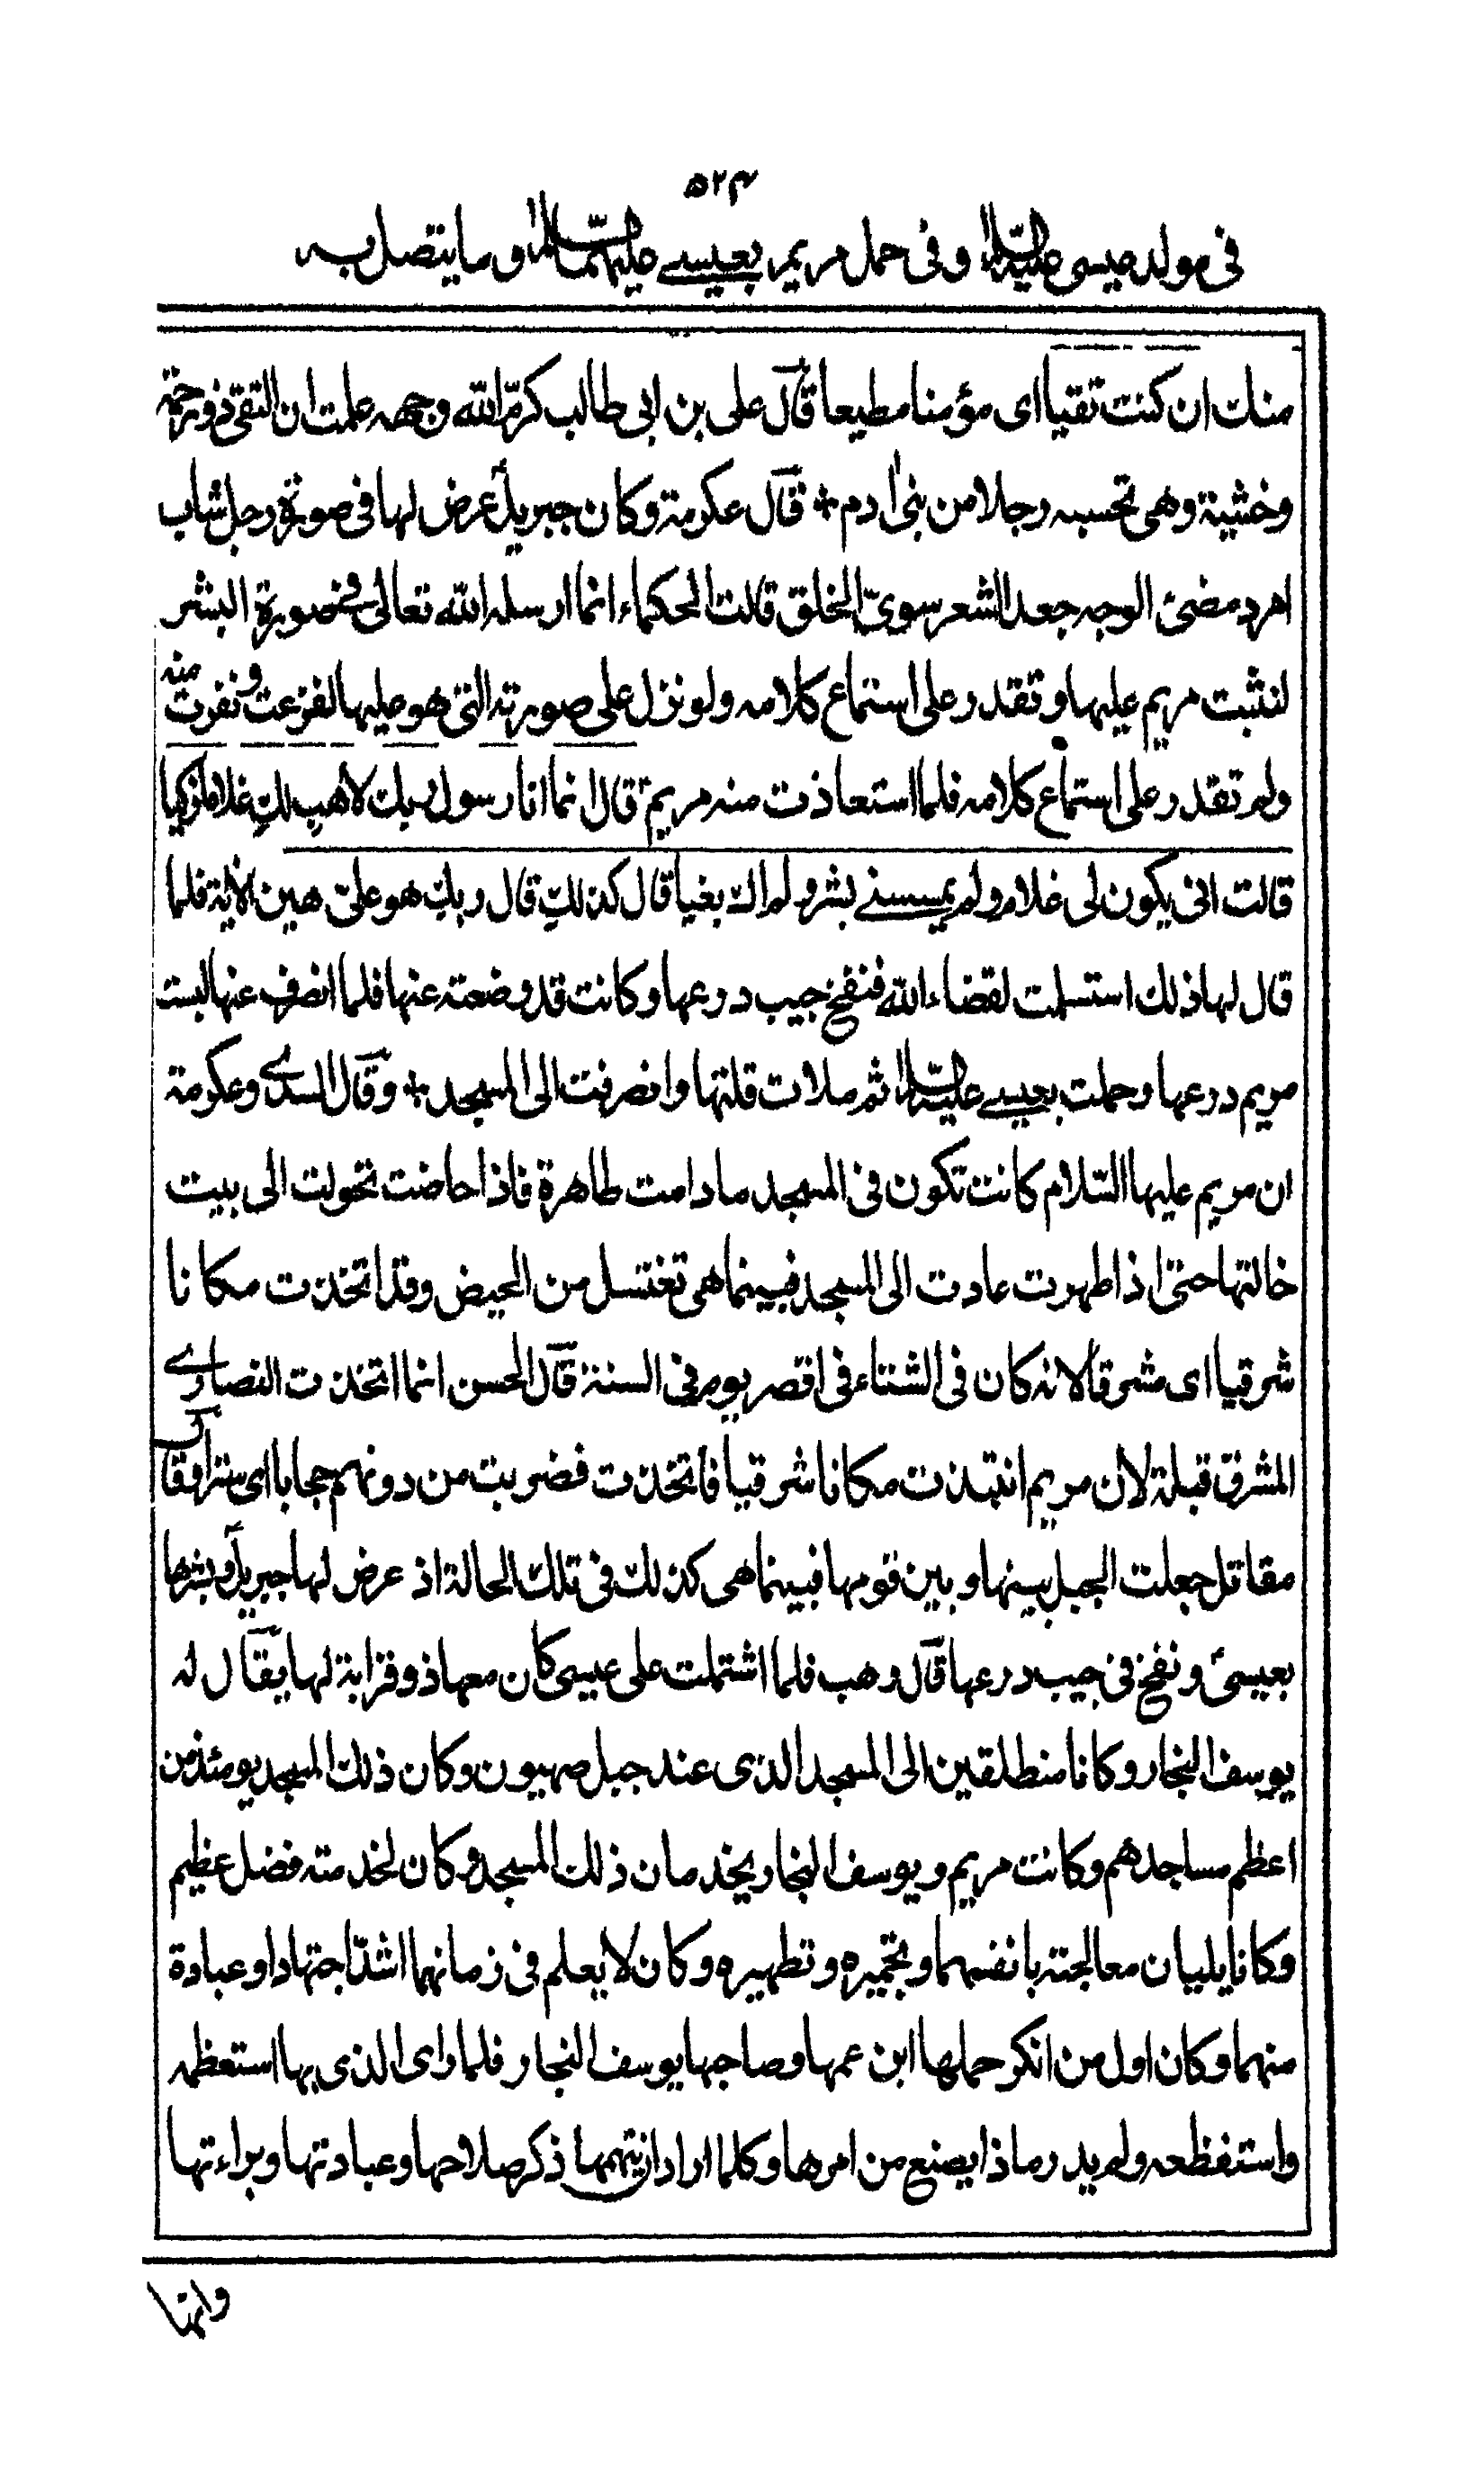 ٥٢٣
فى مولد عيسى عليه السلام وفى حمل مريم بعيسے عليهما السلام وما يتصل به
منك ان كنت تقيا اى مؤمنا مطيعا قال على بن ابى طالب كرّم الله وجهه علمت ان التقى ذو رحمة
وخشية وهى تحسبه رجلا من بنى اٰدم ٭ قال عكرمة وكان جبريل عرض لها فى صورة رجل شاب
امرد مضئ الوجه جعد الشعر سوىّ الخلق قالت الحكماء انما ارسله الله تعالى فى صورة البشر
لتثبت مريم عليها وتقدر على استماع كلامه ولو نزل على صورته التى هو عليها لفزعت ونفرت منه
ولم تقدر على استماع كلامه فلما استعاذت منه مريم قال انما انا رسول ربك لاهب لكِ غلاما زكيا
قالت انى يكون لى غلام ولم يمسسنے بشر ولم اك بغيا قال كذلكِ قال ربكِ هو علىّ هين الآية فلما
قال لها ذلك استسلمت لقضاء الله فنفخ جيب درعها وكانت قد وضعته عنها فلما انصرف عنها لبست
مريم درعها وحملت بعيسے عليه السلام ثم ملات قلتها وانصرفت الى المسجد ٭ وقال السدے وعكرمة
ان مريم عليها السّلام كانت تكون فى المسجد ما دامت طاهرة فاذا حاضت تحولت الى بيت
خالتها حتى اذا طهرت عادت الى المسجد فبينما هى تغتسل من الحيض وقد اتخذت مكانا
شرقيا اى مشرقا لانه كان فى الشتاء فى اقصر يوم فى السنة قال الحسن انما اتخذت النصارے
المشرق قبلة لان مريم انتبذت مكانا شرقيا فاتخذت فضربت من دونهم حجابا اى سترا وقال
مقاتل جعلت الجبل بينها وبين قومها فبينما هى كذلك فى تلك الحالة اذ عرض لها جبريل وبشرها
بعيسى ونفخ فى جيب درعها قال وهب فلما اشتملت على عيسى كان معها ذو قرابة لها يقال له
يوسف النجار وكانا منطلقين الى المسجد الذى عند جبل صهيون وكان ذلك المسجد يومئذ من
اعظم مساجدهم وكانت مريم ويوسف النجار يخدمان ذلك المسجد وكان لخدمته فضل عظيم
وكانا يليان معالجته بانفسهما وتجميره وتطهيره وكان لا يعلم فى زمانهما اشدّ اجتهادا وعبادة
منهما وكان اول من انكر حملها ابن عمها وصاحبها يوسف النجار فلما راى الذى بها استعظمه
واستفظعه ولم يدر ما ذا يصنع من امرها وكلما اراد ان يتهمها ذكر صلاحها وعبادتها وبراءتها
وانها